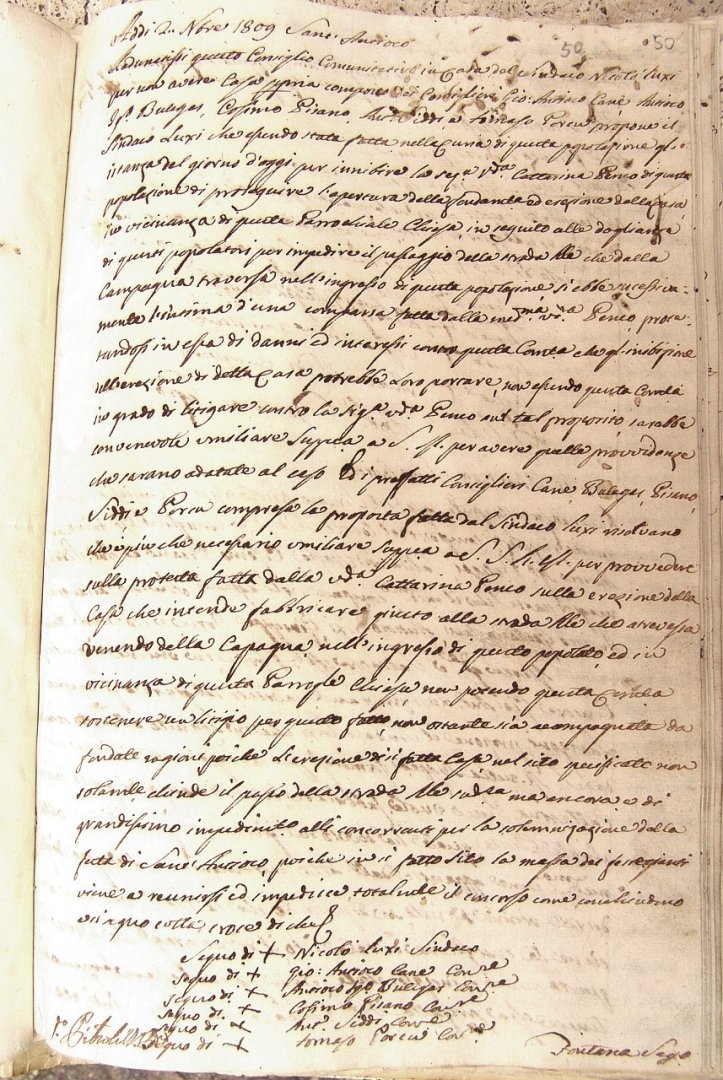 50 50
Addi 2. Nbre 1809 Sant' Antioco
Adunatosi questo Consiglio Comunitativo in Casa del Sindaco Nicolò Luxi
per non avere Casa ppria composto dei Consiglieri Gio: Antioco Cane Antioco
Bulegas, Cosimo Pisano, Ant.o Siddi, e Tomaso Porcu propone il
Sindaco Luxi che essendo stata fatta nella Curia di questa popolazione
istanza del giorno d'oggi per innibire la sig.a v.da Cattarina Penco di questa
popolazione di proseguire l'apertura delle fondamta ed erezione della casa
in vicinanza di questa Parrochiale Chiesa, in seguito alle doglianze
di questi popolatori per impedire il passaggio della strada Rle che dalla
Campagna traversa nell'ingresso di questa popolazione si ebbe sucessiva-
mente l'intima d'una comparsa fatta dalla med.ma v.da Penco prote-
standosi in essa di danni ed interessi contro questa Comtà che l'inibizione
dell'erezione di detta Casa potrebbe Loro portare, non essendo questa Comtà
in grado di litigare contro la sig.a v.da Penco sul tal proposito, sarebbe
convenevole umiliare Supp.ca a S. per avere quelle provvidenze
che sarano adatate al caso Ed i prefatti Consiglieri Cane, Bulegas, Pisano,
Siddi e Porcu compresa la proposta fatta dal Sindaco Luxi risolvano
che è più che necessario umiliare Supp.ca a S. S. per provvedere
sulla protesta fatta dalla v.da Cattarina Penco sulla erezione della
Casa che intende fabbricare giusto alla strada Rle che atrevessa
venendo della Capagna nell'ingresso di questo popolato, ed in
vicinanza di questa Parrochle Chiesa non potendo questa Comtà
sostenere un litigio per questo fatto, non ostante sia accompagnata da
fondate ragioni poiche l'erezione di si fatta Casa nel sito specificato non
solamte chiude il passo della strada Rle sud.ta ma ancora è di
grandissimo impedimto alli concorrenti per la solemnizazione della
festa di Sant' Antioco, poiche in si fatto Sito la massa dei festeggianti
viene a reunirsi ed impedisce totalmte il concorso come concludiamo
e signano colla croce di che
Segno di + Nicolò Luxi Sindaco
Segno di + Gio: Antioco Cane Con.re
Segno di + Antioco Bulegas Con.re
Segno di + Cosimo Pisano Con.re
Segno di + Ant.o Siddi Con.re
Segno di + Tomaso Porcu Con.re
Fontana Seg.o